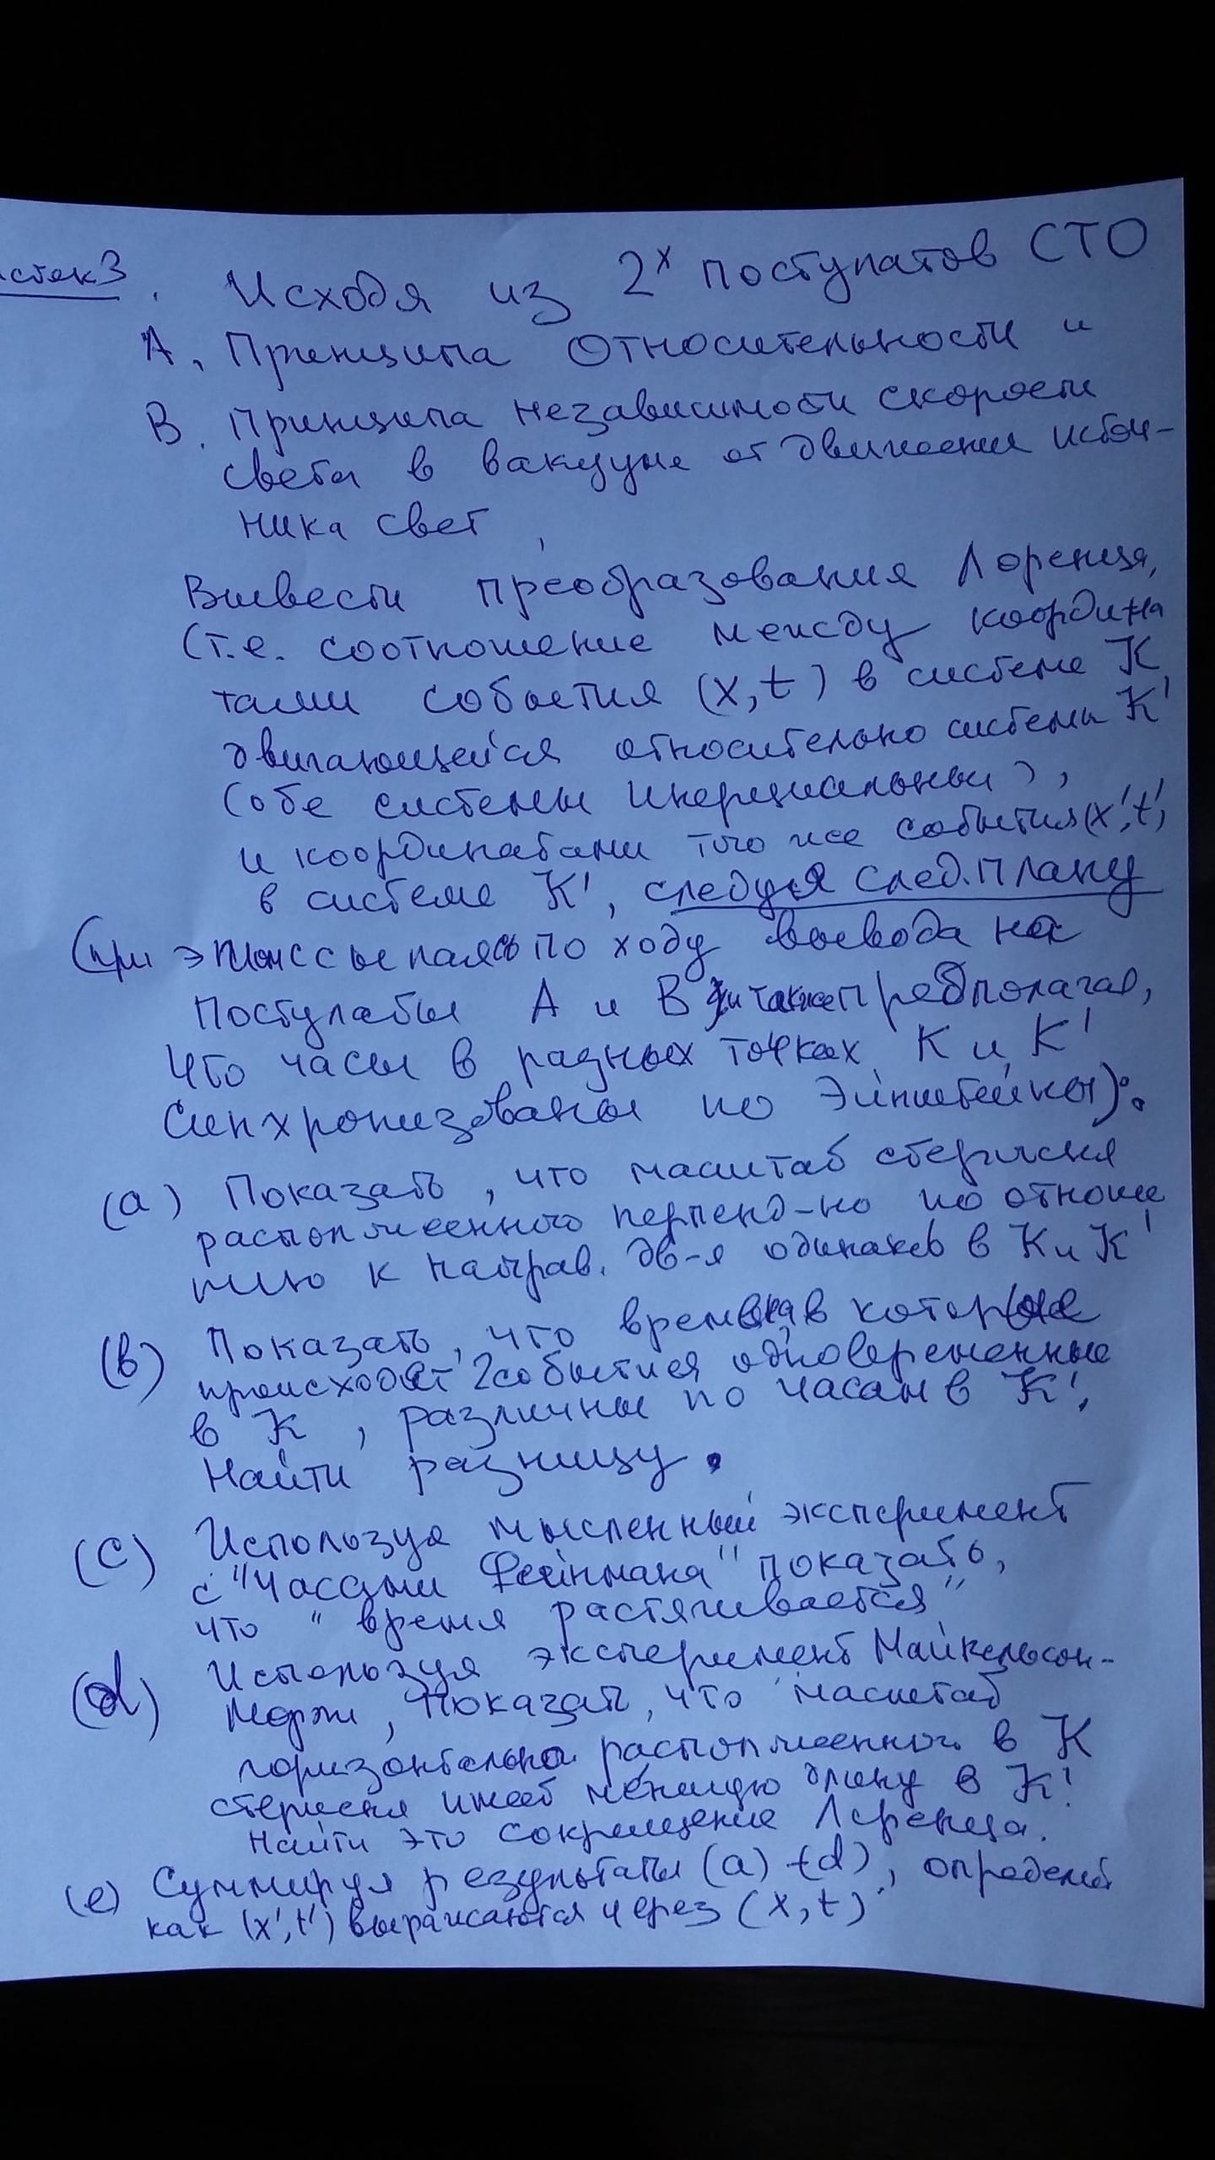 3. Исходя из 2х поступатов СТО
А. Принципа Относительности и
В. Принципа независимости скорости
света в вакууме от движения источ-
ника свет,
Вывести преобразования Лоренца,
(т.е. соотношение между координа
тами события (x,t) в системе K
двигающейся относительно системы K'
(обе системы инерциальны),
и координатами того же события (x',t')
в системе K', следуя след. плану
(при этом ссылаясь по ходу вывода на
Постулаты А и В и также предполагая,
что часы в разных точках K и K'
синхронизованы по Эйнштейну):
(a) Показать, что масштаб стержня
расположенного перпенд-но по отноше
нию к направ. дв-я одинаков в K и K'
(b) Показать, что времена, в которые
происходят 2 события одновременные
в K, различны по часам в K'.
Найти разницу.
(c) Используя мысленный эксперимент
с "Часами Фейнмана" показать,
что "время растягивается"
(d) Используя эксперимент Майкельсон-
Морли, показать, что масштаб
горизонтально расположенног. в K
стержня имеет меньшую длину в K'.
Найти это сокращение Лоренца.
(e) Суммируя результаты (a) - (d), определить
как (x',t') выражаются через (x,t)